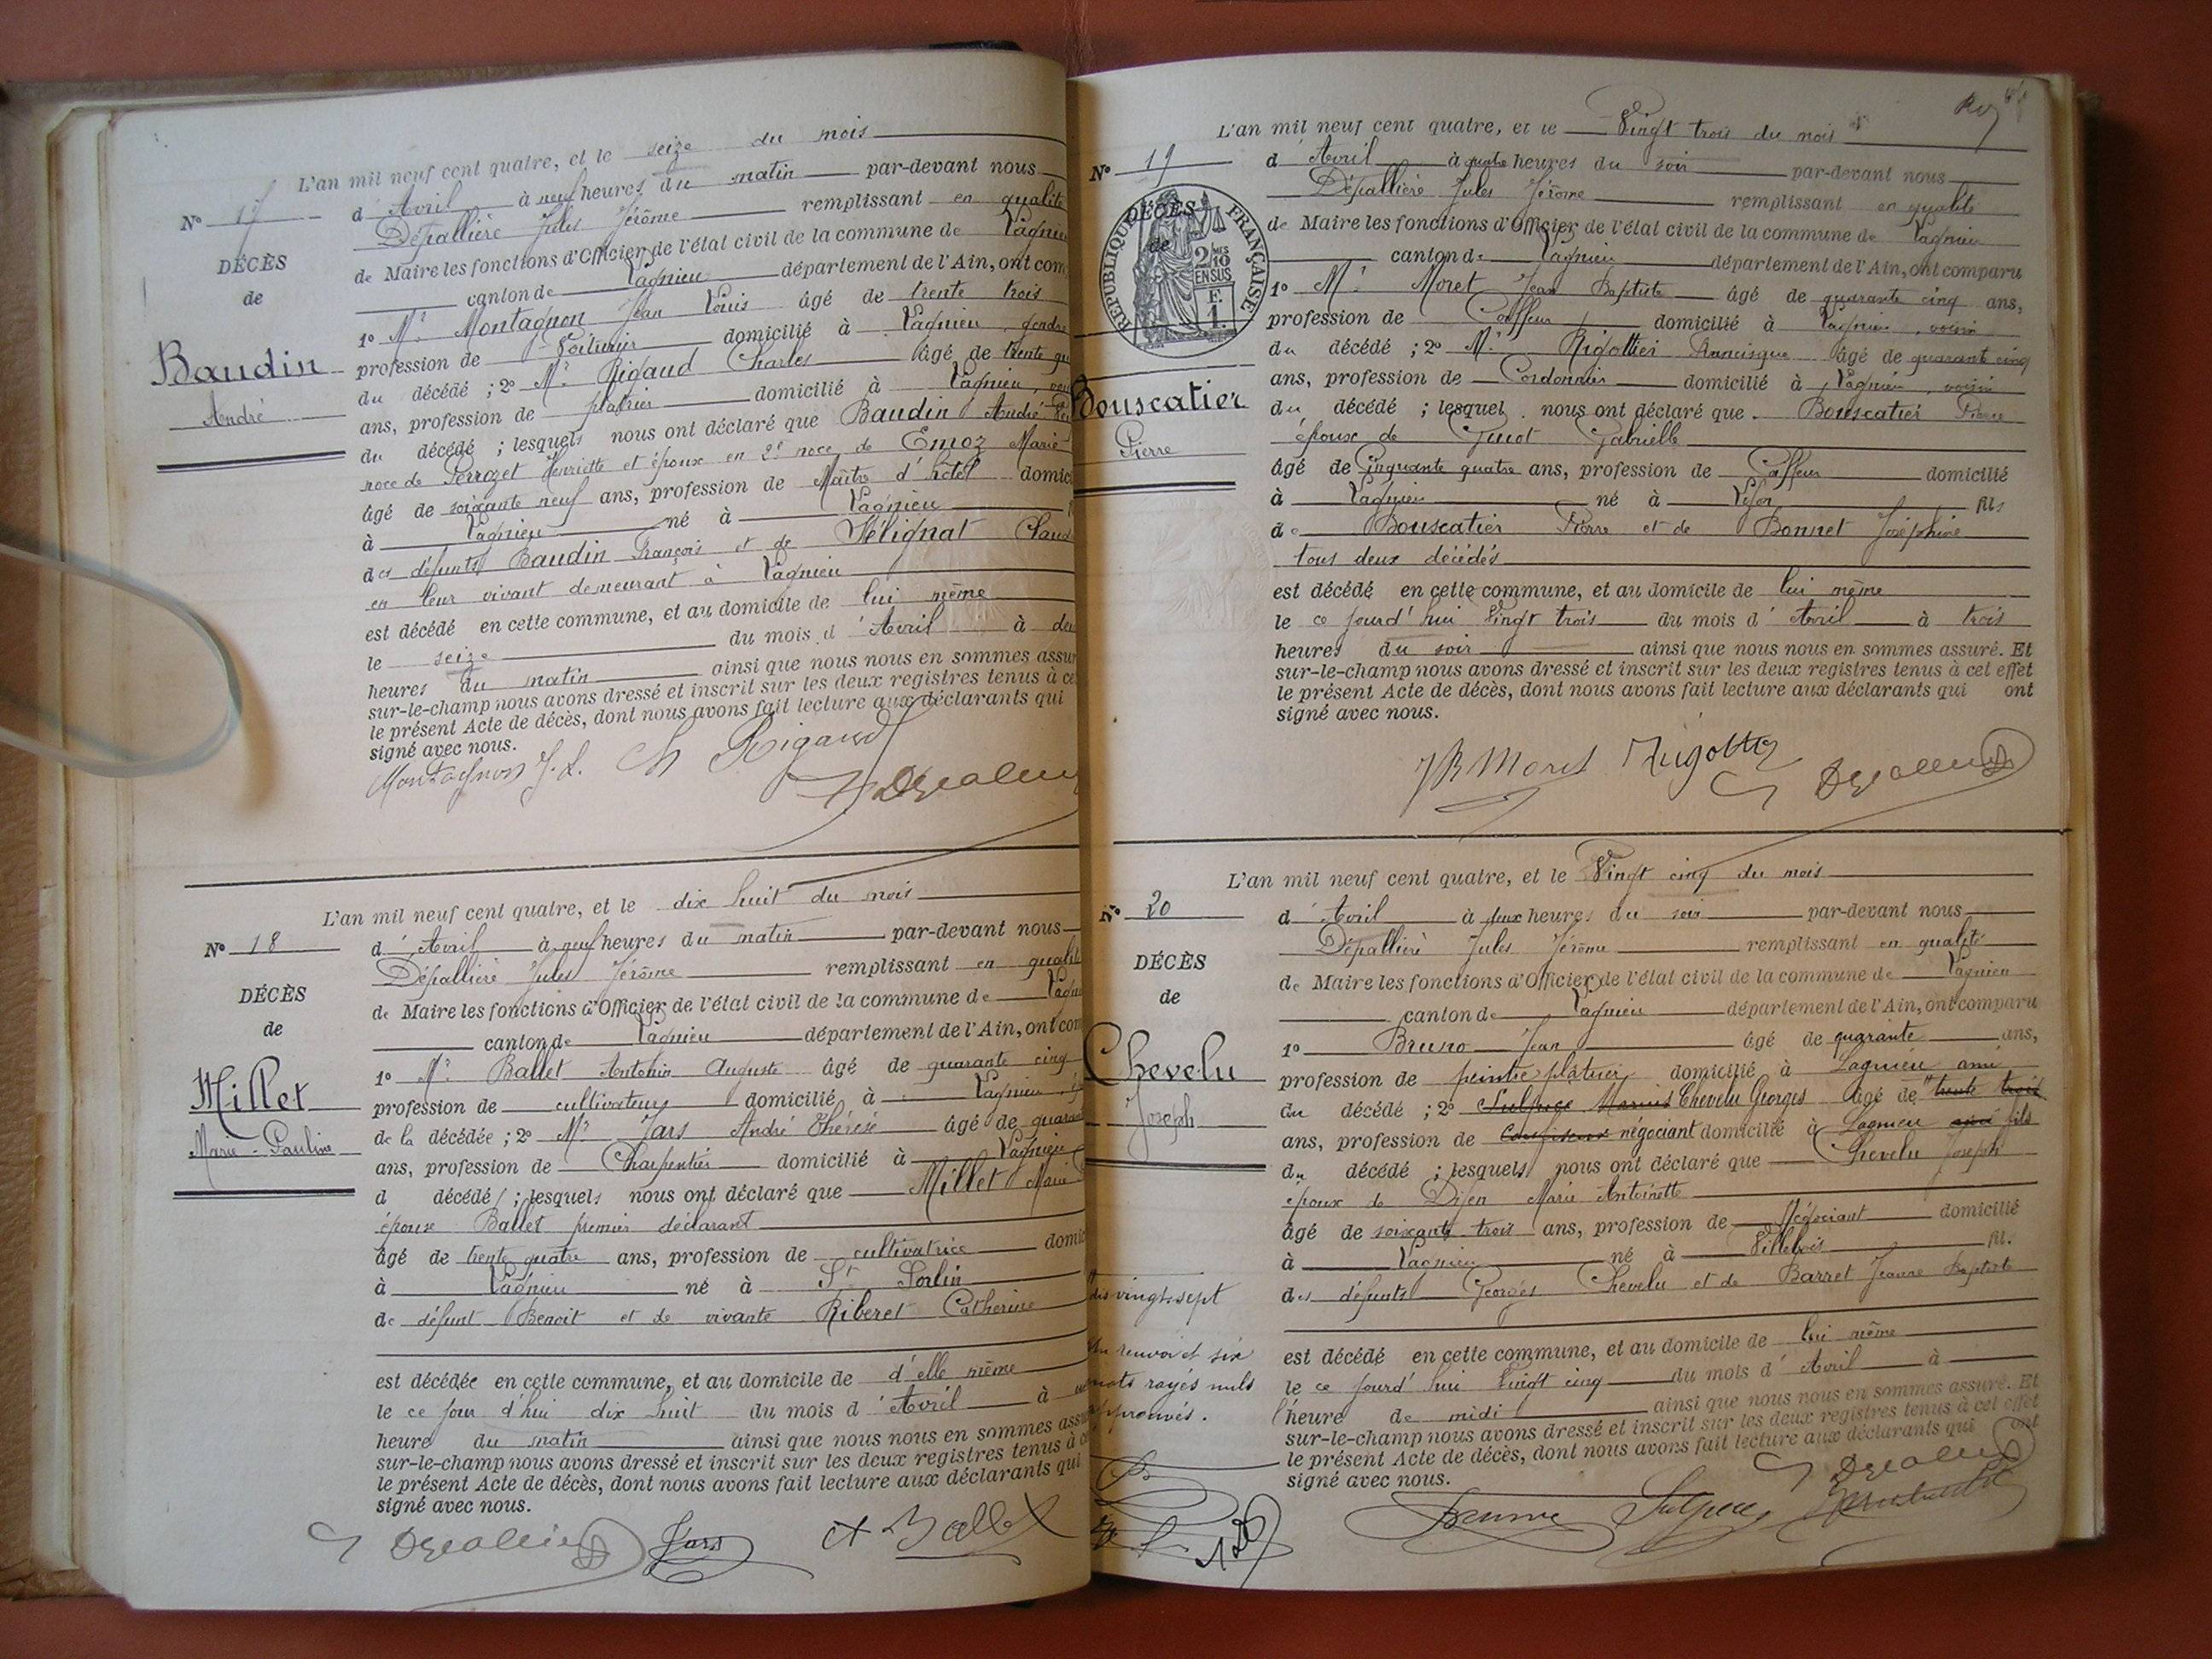 L'an mil neuf cent quatre, et le seize du mois
N° 17
d'Avril à neuf heures du matin par-devant nous
Dépallière Jules Jérôme remplissant en qualité
DÉCÈS
de Maire les fonctions d'Officier de l'état civil de la commune de Lagnieu
de
canton de Lagnieu département de l'Ain, ont com
1° Mr Montagnon Jean Louis âgé de trente trois
Baudin
profession de Voiturier domicilié à Lagnieu, gendre
du décédé ; 2° Mr Rigaud Charles âgé de trente
André
ans, profession de platrier domicilié à Lagnieu,
du décédé ; lesquels nous ont déclaré que Baudin André
noce de Perrozet Henriette et époux en 2e noce de Emoz Marie
âgé de soixante neuf ans, profession de Maître d'hôtel domic
à Lagnieu né à Lagnieu
des défunts Baudin François et de Sélignat
en leur vivant demeurant à Lagnieu
est décédé en cette commune, et au domicile de lui même
le seize du mois d'Avril à
heures du matin ainsi que nous nous en sommes assur
sur-le-champ nous avons dressé et inscrit sur les deux registres tenus à ce
le présent Acte de décès, dont nous avons fait lecture aux déclarants qui
signé avec nous.
Montagnon J. L. Ch Rigaud
L'an mil neuf cent quatre, et le dix huit du mois
N° 18
d'Avril à neuf heures du matin par-devant nous
Dépallière Jules Jérôme remplissant en qualit
DÉCÈS
de Maire les fonctions d'Officier de l'état civil de la commune de Lagn
de
canton de Lagnieu département de l'Ain, ont com
1° Mr Ballet Antonin Auguste âgé de quarante cinq
Millet
profession de cultivateur domicilié à Lagnieu
Marie-Pauline
de la décédée ; 2° Mr Jars André Thérèse âgé de
ans, profession de Charpentier domicilié à Lagnieu
d décédé ; lesquels nous ont déclaré que Millet Marie
épouse Ballet premier déclarant
âgé de trente quatre ans, profession de cultivatrice domic
à Lagnieu né à St Sorlin
de défunt Benoit et de vivante Riberet Catherine
est décédée en cette commune, et au domicile de d'elle même
le ce jour d'hui dix huit du mois d'Avril à
heure du matin ainsi que nous nous en sommes assu
sur-le-champ nous avons dressé et inscrit sur les deux registres tenus à ce
le présent Acte de décès, dont nous avons fait lecture aux déclarants qui
signé avec nous.
Jars Ballet
L'an mil neuf cent quatre, et le Vingt trois du mois
N° 19
d'Avril à quatre heures du soir par-devant nous
Dépallière Jules Jérôme remplissant en qualité
DÉCÈS
de
RÉPUBLIQUE FRANÇAISE
2/10 EN SUS
F. 1.
de Maire les fonctions d'Officier de l'état civil de la commune de Lagnieu
canton de Lagnieu département de l'Ain, ont comparu
1° Mr Moret Jean Baptiste âgé de quarante cinq ans,
profession de Coiffeur domicilié à Lagnieu, voisin
du décédé ; 2° Mr Rigottier Francisque âgé de quarante cinq
ans, profession de Cordonnier domicilié à Lagnieu, voisin
Bouscatier
Pierre
du décédé ; lesquel nous ont déclaré que Bouscatier Pierre
époux de Guiot Gabrielle
âgé de Cinquante quatre ans, profession de Coiffeur domicilié
à Lagnieu né à Lyon fils
de Bouscatier Pierre et de Bonnet Joséphine
tous deux décédés
est décédé en cette commune, et au domicile de lui même
le ce jourd'hui Vingt trois du mois d'Avril à trois
heures du soir ainsi que nous nous en sommes assuré. Et
sur-le-champ nous avons dressé et inscrit sur les deux registres tenus à cet effet
le présent Acte de décès, dont nous avons fait lecture aux déclarants qui ont
signé avec nous.
JB Moret Rigottier
L'an mil neuf cent quatre, et le Vingt cinq du mois
N° 20
d'Avril à deux heures du soir par-devant nous
Dépallière Jules Jérôme remplissant en qualité
DÉCÈS
de Maire les fonctions d'Officier de l'état civil de la commune de Lagnieu
de
canton de Lagnieu département de l'Ain, ont comparu
1° Bruno Jean âgé de quarante ans,
Chevelu
profession de peintre plâtrier domicilié à Lagnieu ami
Joseph
du décédé ; 2° Sulpice Marius Chevelu Georges âgé de trente trois
ans, profession de négociant domicilié à Lagnieu ami fils
du décédé ; lesquels nous ont déclaré que Chevelu Joseph
époux de Dijen Marie Antoinette
âgé de soixante trois ans, profession de Négociant domicilié
à Lagnieu né à Villebois fils
des défunts Georges Chevelu et de Barret Jeanne Baptiste
vingt-sept
Un renvoi et six
mots rayés nuls
approuvés.
est décédé en cette commune, et au domicile de lui même
le ce jourd'hui Vingt cinq du mois d'Avril à
l'heure de midi ainsi que nous nous en sommes assuré. Et
sur-le-champ nous avons dressé et inscrit sur les deux registres tenus à cet effet
le présent Acte de décès, dont nous avons fait lecture aux déclarants qui ont
signé avec nous.
Sulpice